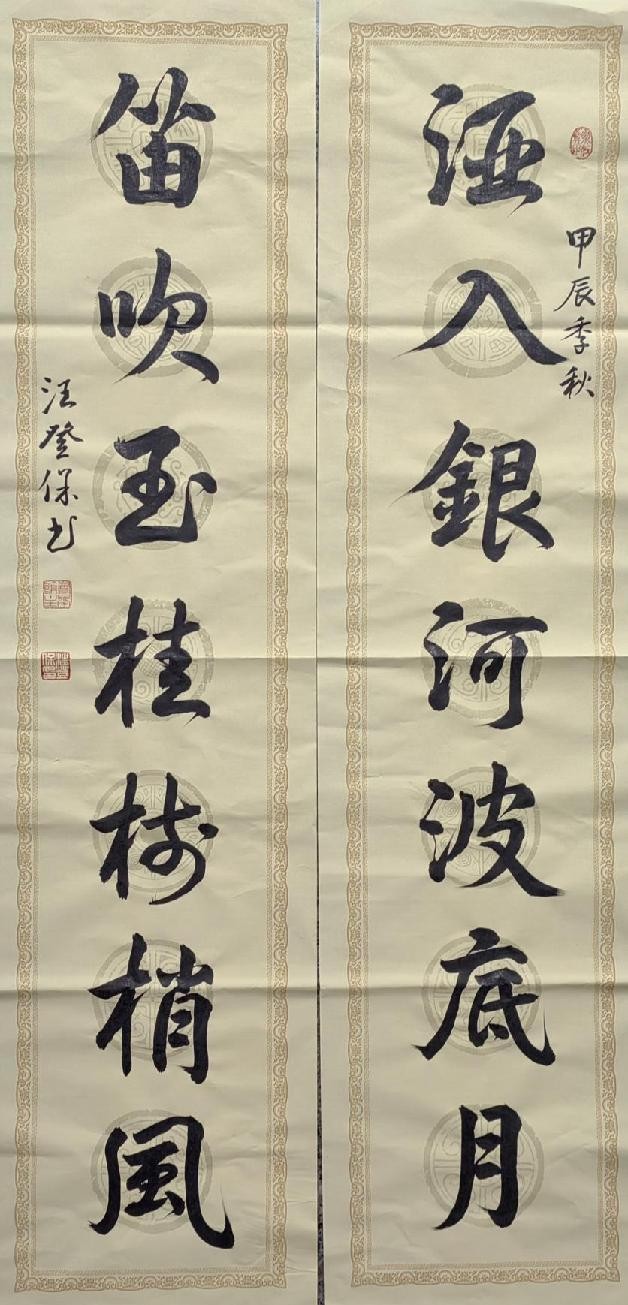 甲辰季秋
酒入銀河波底月
笛吹玉桂樹梢風
汪登保书